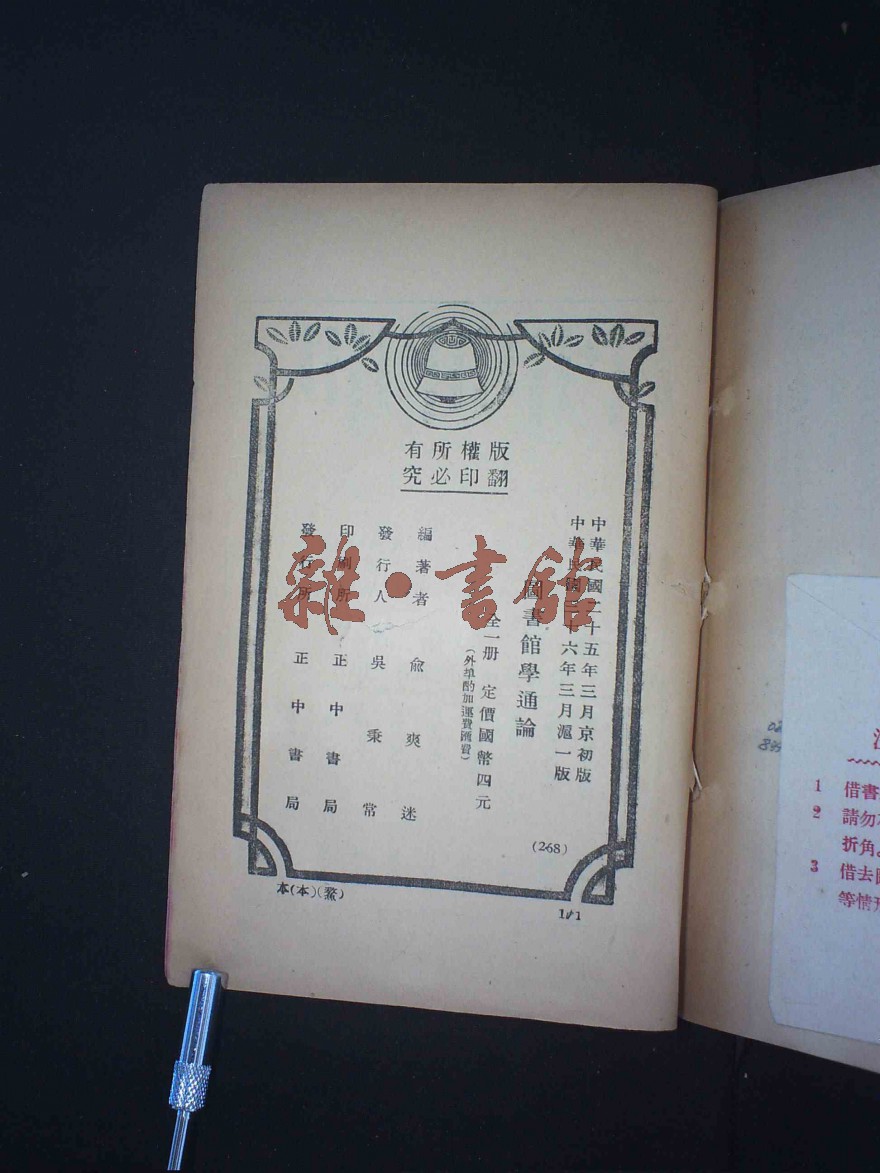 版權所有
翻印必究
中華民國二十五年三月京初版
中華民國三十六年三月滬一版
圖書館學通論
全一册 定價國幣四元
(外埠酌加運費匯費)
編著者 俞爽迷
發行人 吳秉常
印刷所 正中書局
發行所 正中書局
(268)
本(本)(鰲)
1/1
雜·書館
1 借書
2 請勿
折角
3 借去
等情